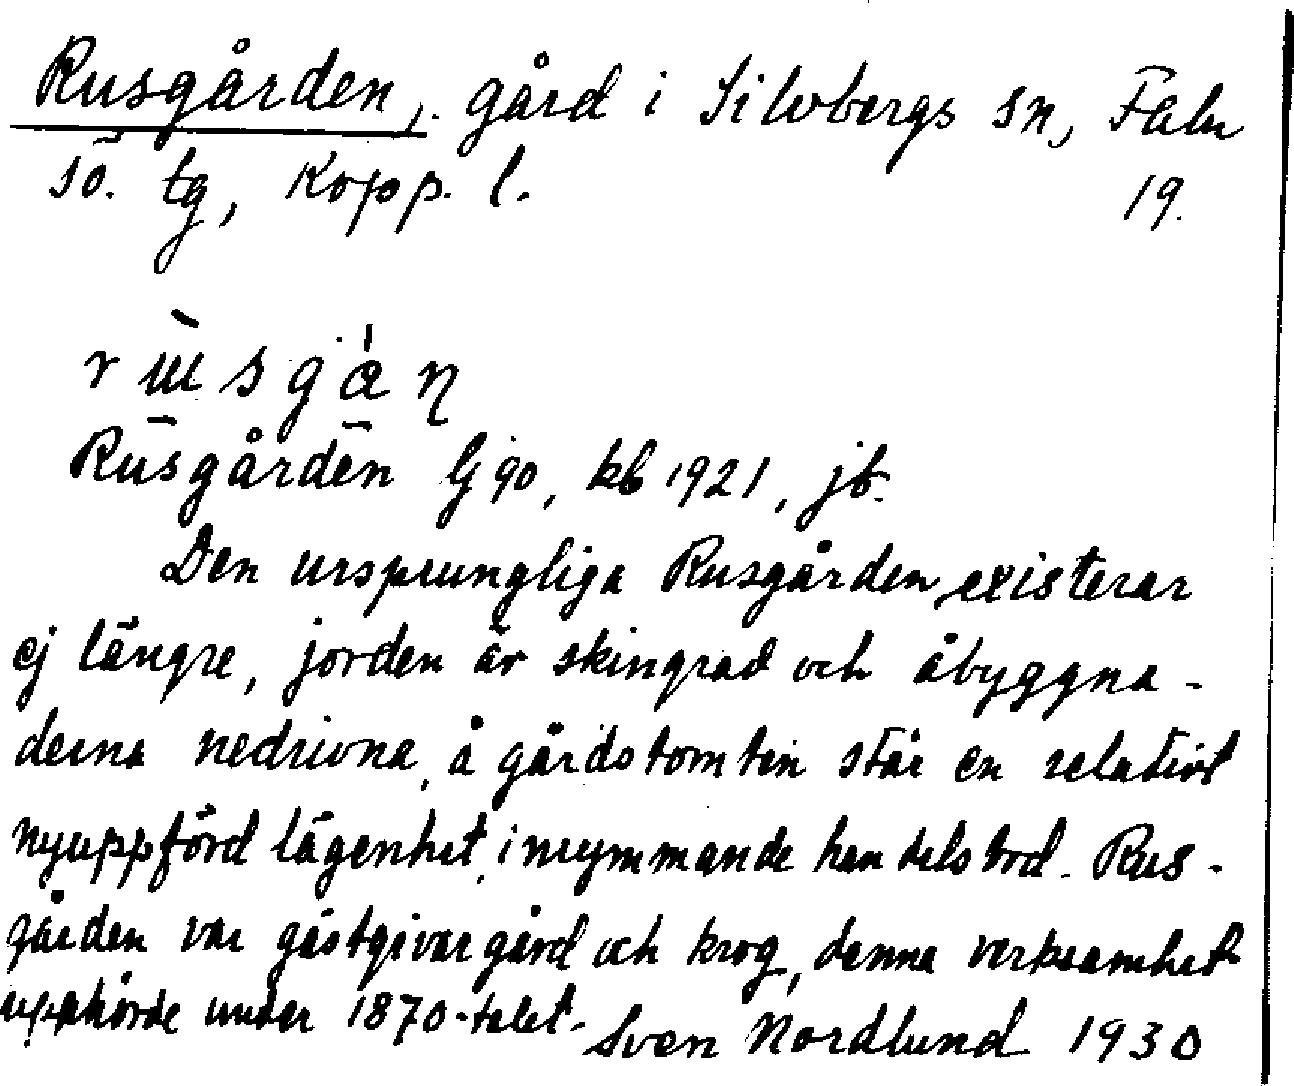 Rusgården, gård i Silvbergs sn, Falu
sö. tg, Kopp. l. 19.
Rusgården Gj 90, kb 1921, jb.
Den ursprungliga Rusgården existerar
ej längre, jorden är skingrad och åbyggna-
derna nedrivna, å gårdstomten står en relativt
nyuppförd lägenhet, inrymmande handelsbod. Rus-
gården var gästgivargård och krog, denna verksamhet
upphörde under 1870-talet. Sven Nordlund 1930